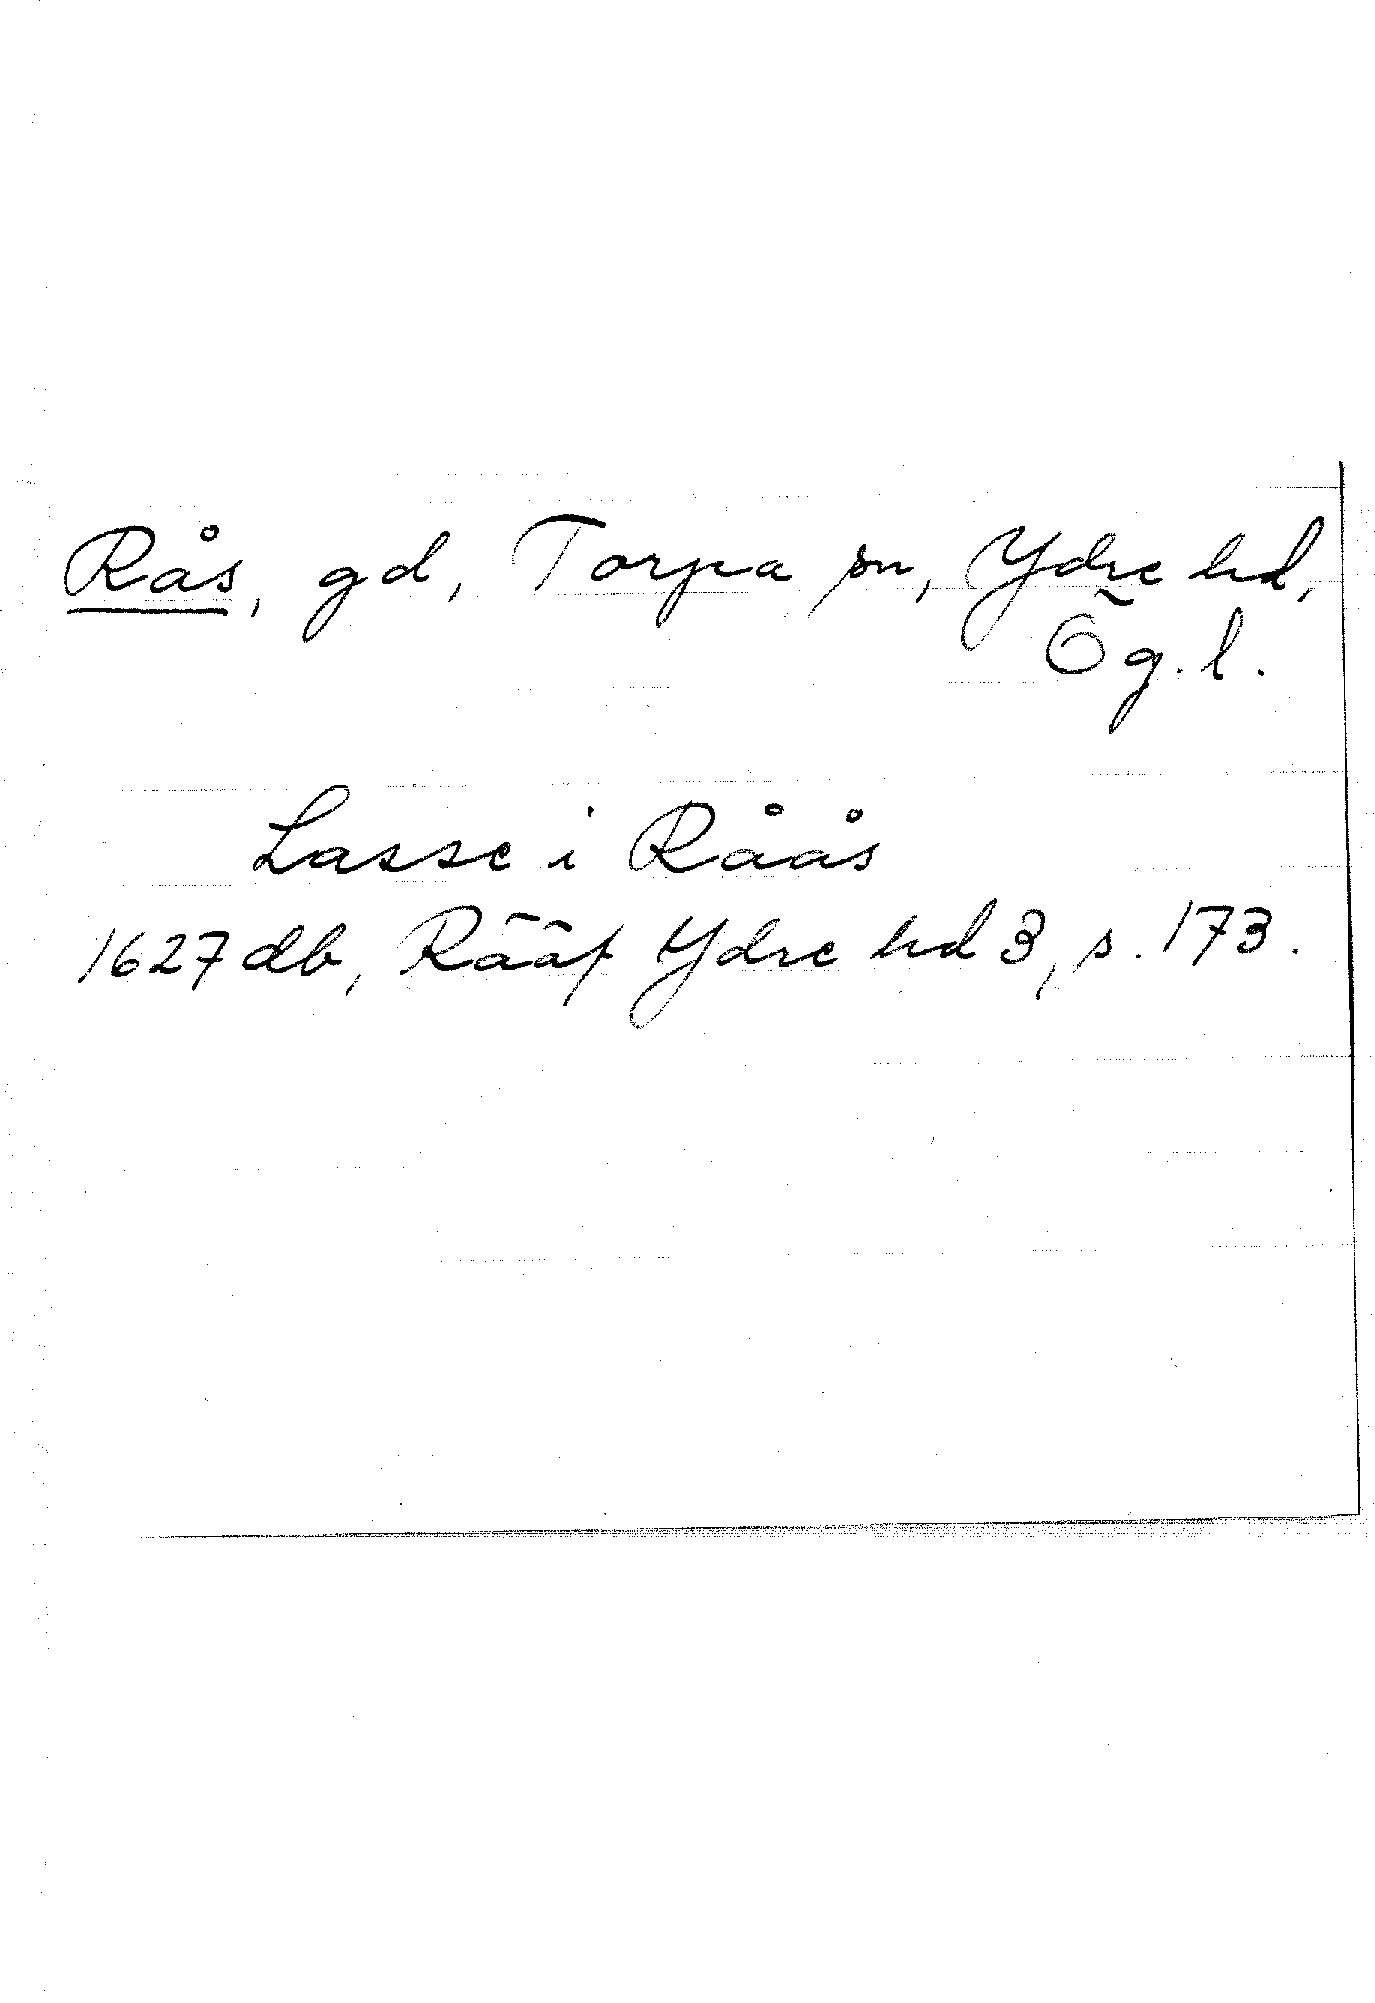 Rås, gd, Torpa sn, Ydre hd,
Ög. l.
Lasse i Råås
1627 db, Rääf Ydre hd 3, s. 173.